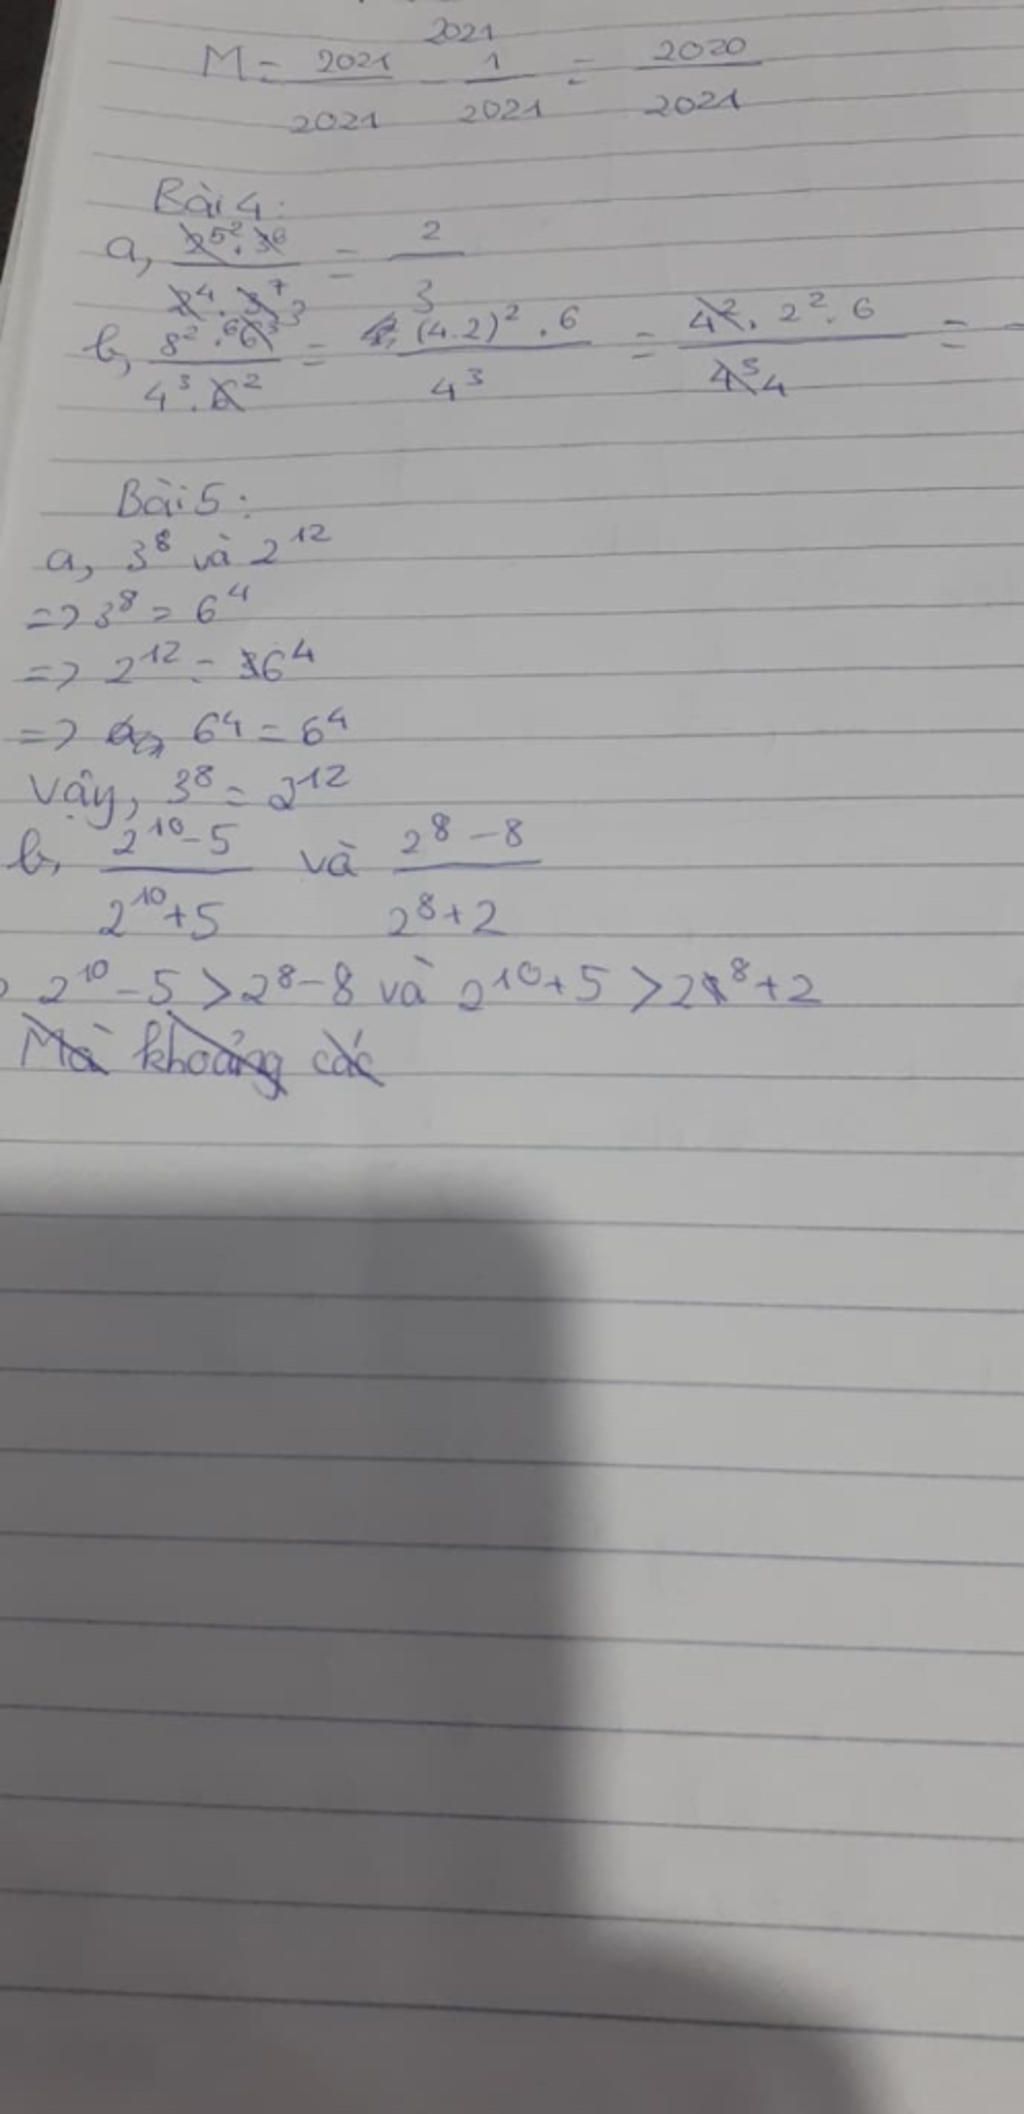 2021
M = 2021/2021 - 1/2021 = 2020/2021
Bài 4:
a, 2⁵ ² . 3⁶ / 2⁴ . 3⁷ 3 = 2/3
b, 8² . 6 6³ / 4³ . 6² = (4.2)² . 6 / 4³ = 4² . 2² . 6 / 4³ 4 =
Bài 5:
a, 3⁸ và 2¹²
=> 3⁸ = 6⁴
=> 2¹² = 6⁴
=> 6⁴ = 6⁴
Vậy, 3⁸ = 2¹²
b, 2¹⁰ - 5 / 2¹⁰ + 5 và 2⁸ - 8 / 2⁸ + 2
2¹⁰ - 5 > 2⁸ - 8 và 2¹⁰ + 5 > 2⁸ + 2
Mà khoảng các